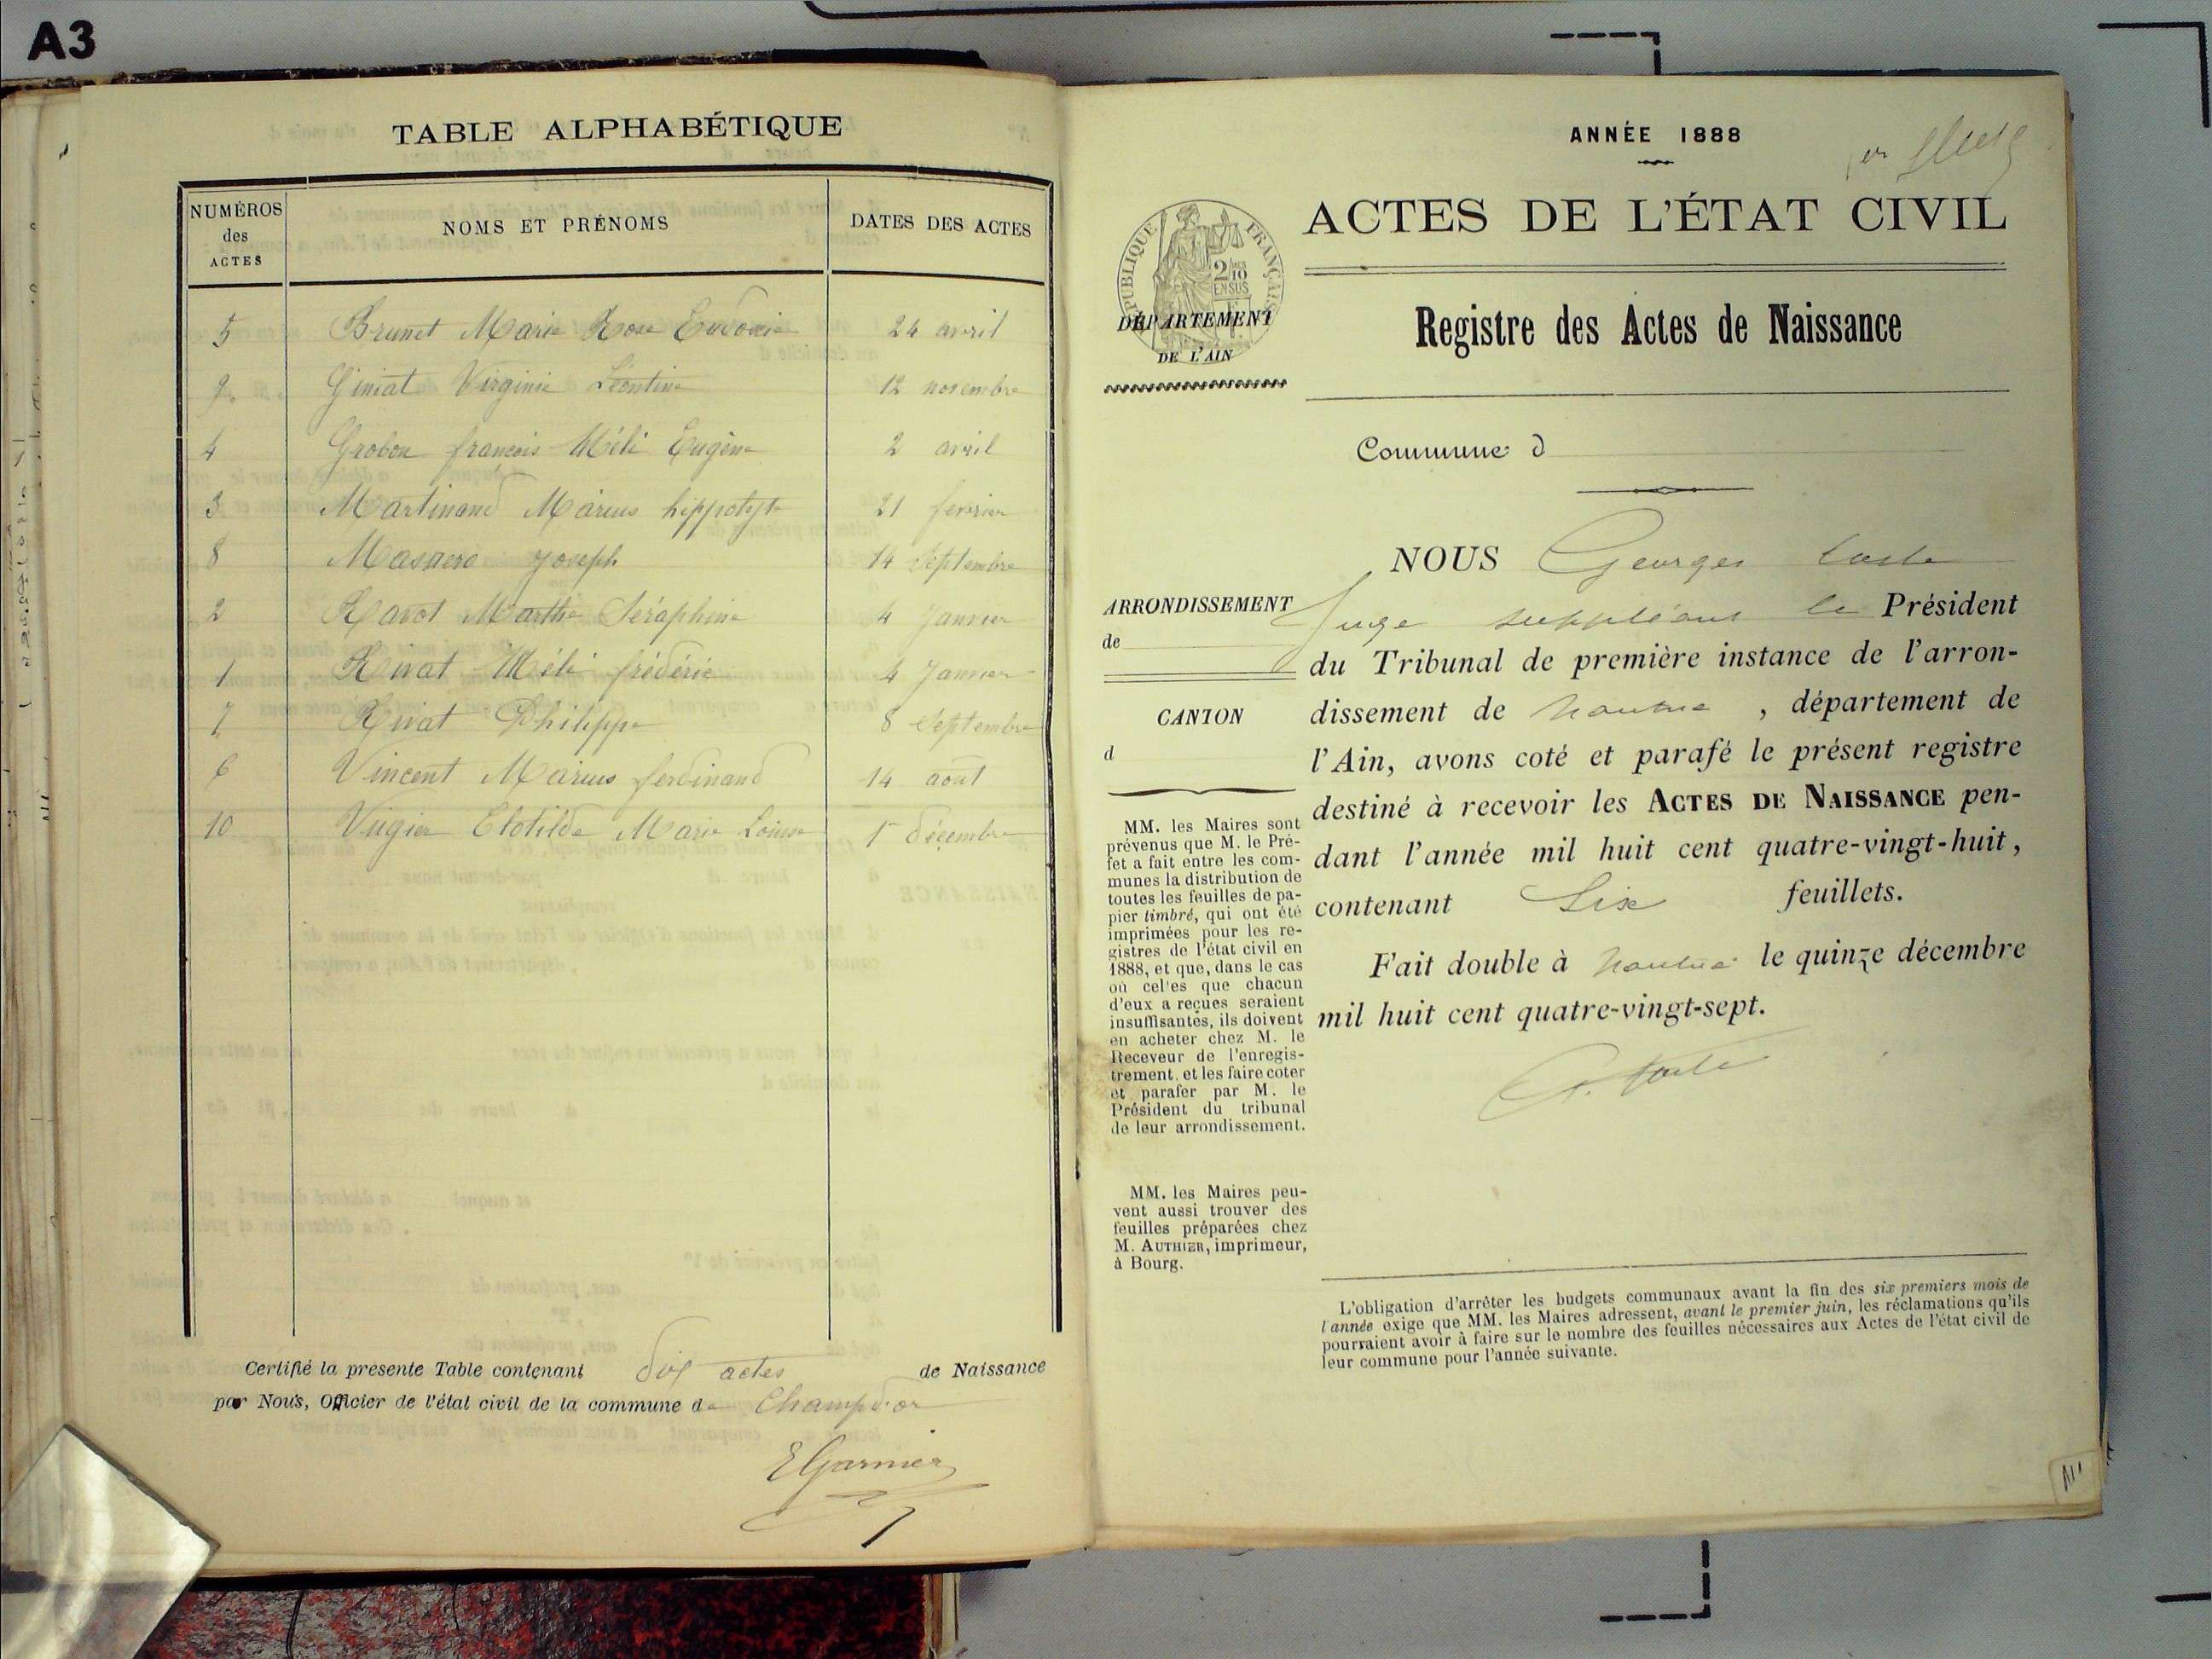 A3
TABLE ALPHABÉTIQUE
NUMÉROS des ACTES
NOMS ET PRÉNOMS
DATES DES ACTES
5 Brunet Marie Rose Eudoxie 24 avril
9 Giniat Virginie Léontine 12 novembre
4 Grobon françois Méli Eugène 2 avril
3 Martinand Márius hippolyte 21 fevrier
8 Joseph 14 Septembre
2 Ravot Marthe Séraphine 4 Janvier
1 Rivat Méli frédéric 4 Janvier
7 Rivat Philippe 8 Septembre
6 Vincent Marius ferdinand 14 aout
10 Clotilde Marie Louise 1 décembre
Certifié la presente Table contenant dix actes de Naissance
par Nous, Officier de l'état civil de la commune de Champd'or
EGarnier
ANNÉE 1888
ACTES DE L'ÉTAT CIVIL
RÉPUBLIQUE FRANÇAISE
2/10
EN SUS
DÉPARTEMENT
DE L'AIN
Registre des Actes de Naissance
Commune d
ARRONDISSEMENT
de
CANTON
d
MM. les Maires sont
prévenus que M. le Pré-
fet a fait entre les com-
munes la distribution de
toutes les feuilles de pa-
pier timbré, qui ont été
imprimées pour les re-
gistres de l'état civil en
1888, et que, dans le cas
où cel'es que chacun
d'eux a reçues seraient
insuffisantes, ils doivent
en acheter chez M. le
Receveur de l'enregis-
trement, et les faire coter
et parafer par M. le
Président du tribunal
de leur arrondissement.
MM. les Maires peu-
vent aussi trouver des
feuilles préparées chez
M. AUTHIER, imprimeur,
à Bourg.
NOUS Georges
Juge suppléant le Président
du Tribunal de première instance de l'arron-
dissement de Nantua, département de
l'Ain, avons coté et parafé le présent registre
destiné à recevoir les ACTES DE NAISSANCE pen-
dant l'année mil huit cent quatre-vingt-huit,
contenant Six feuillets.
Fait double à Nantua le quinze décembre
mil huit cent quatre-vingt-sept.
L'obligation d'arrêter les budgets communaux avant la fin des six premiers mois de
l'année exige que MM. les Maires adressent, avant le premier juin, les réclamations qu'ils
pourraient avoir à faire sur le nombre des feuilles nécessaires aux Actes de l'état civil de
leur commune pour l'année suivante.